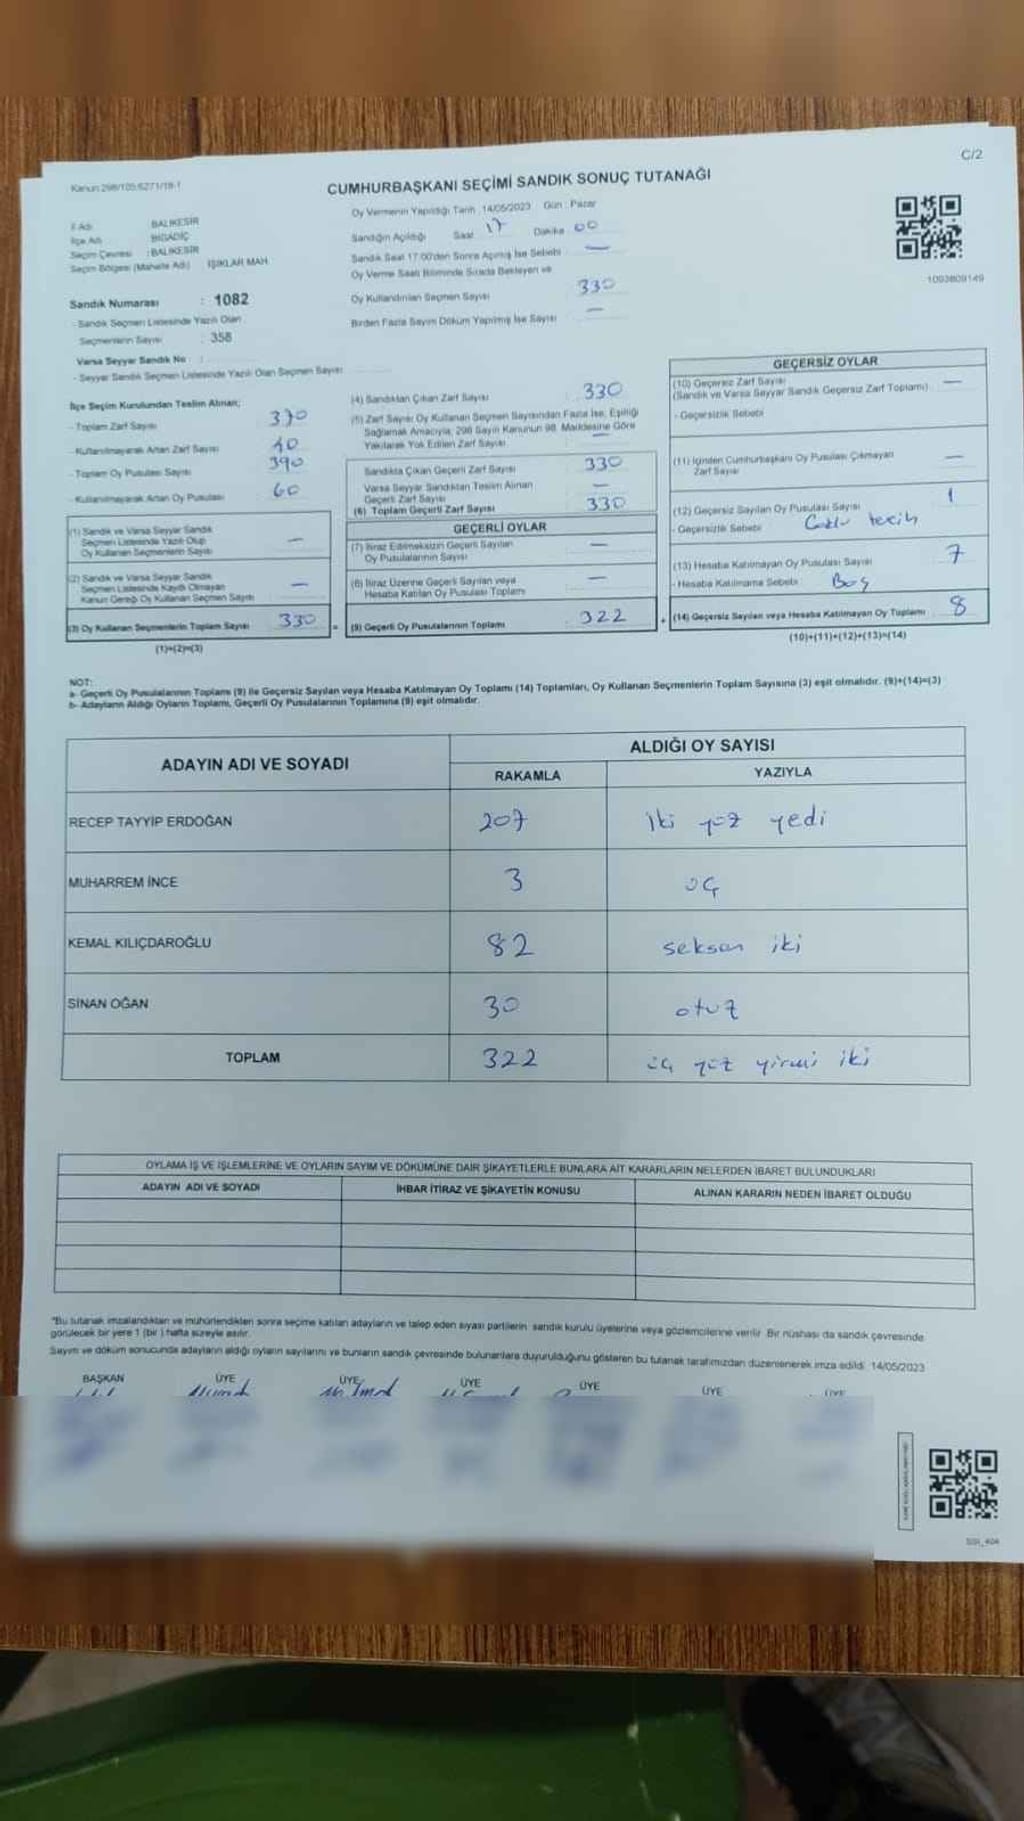 C/2
Kanun 298/105;6271/18-1
CUMHURBAŞKANI SEÇİMİ SANDIK SONUÇ TUTANAĞI
İl Adı : BALIKESİR
İlçe Adı : BİGADİÇ
Seçim Çevresi : BALIKESİR
Seçim Bölgesi (Mahalle Adı) : IŞIKLAR MAH.
Sandık Numarası : 1082
- Sandık Seçmen Listesinde Yazılı Olan
Seçmenlerin Sayısı : 358
Varsa Seyyar Sandık No :
- Seyyar Sandık Seçmen Listesinde Yazılı Olan Seçmen Sayısı
Oy Vermenin Yapıldığı Tarih :14/05/2023 Gün : Pazar
Sandığın Açıldığı Saat 17 Dakika 00
Sandık Saat 17:00'den Sonra Açılmış İse Sebebi —
Oy Verme Saati Bitiminde Sırada Bekleyen ve
Oy Kullandırılan Seçmen Sayısı 330
Birden Fazla Sayım Döküm Yapılmış İse Sayısı —
1093809149
İlçe Seçim Kurulundan Teslim Alınan;
- Toplam Zarf Sayısı 370
- Kullanılmayarak Artan Zarf Sayısı 40
- Toplam Oy Pusulası Sayısı 390
- Kullanılmayarak Artan Oy Pusulası 60
(1) Sandık ve Varsa Seyyar Sandık
Seçmen Listesinde Yazılı Olup
Oy Kullanan Seçmenlerin Sayısı —
(2) Sandık ve Varsa Seyyar Sandık
Seçmen Listesinde Kayıtlı Olmayan
Kanun Gereği Oy Kullanan Seçmen Sayısı —
(3) Oy Kullanan Seçmenlerin Toplam Sayısı 330 =
(1)+(2)=(3)
(4) Sandıktan Çıkan Zarf Sayısı 330
(5) Zarf Sayısı Oy Kullanan Seçmen Sayısından Fazla İse, Eşitliği
Sağlamak Amacıyla, 298 Sayılı Kanunun 98. Maddesine Göre
Yakılarak Yok Edilen Zarf Sayısı —
Sandıkta Çıkan Geçerli Zarf Sayısı 330
Varsa Seyyar Sandıktan Teslim Alınan
Geçerli Zarf Sayısı —
(6) Toplam Geçerli Zarf Sayısı 330
GEÇERLİ OYLAR
(7) İtiraz Edilmeksizin Geçerli Sayılan
Oy Pusulalarının Sayısı —
(8) İtiraz Üzerine Geçerli Sayılan veya
Hesaba Katılan Oy Pusulası Toplamı —
(9) Geçerli Oy Pusulalarının Toplamı 322 +
GEÇERSİZ OYLAR
(10) Geçersiz Zarf Sayısı
(Sandık ve Varsa Seyyar Sandık Geçersiz Zarf Toplamı) —
- Geçersizlik Sebebi
(11) İçinden Cumhurbaşkanı Oy Pusulası Çıkmayan
Zarf Sayısı —
(12) Geçersiz Sayılan Oy Pusulası Sayısı 1
- Geçersizlik Sebebi Çoklu tercih
(13) Hesaba Katılmayan Oy Pusulası Sayısı 7
- Hesaba Katılmama Sebebi Boş
(14) Geçersiz Sayılan veya Hesaba Katılmayan Oy Toplamı 8
(10)+(11)+(12)+(13)=(14)
NOT:
a- Geçerli Oy Pusulalarının Toplamı (9) ile Geçersiz Sayılan veya Hesaba Katılmayan Oy Toplamı (14) Toplamları, Oy Kullanan Seçmenlerin Toplam Sayısına (3) eşit olmalıdır. (9)+(14)=(3)
b- Adayların Aldığı Oyların Toplamı, Geçerli Oy Pusulalarının Toplamına (9) eşit olmalıdır.
ADAYIN ADI VE SOYADI
ALDIĞI OY SAYISI
RAKAMLA YAZIYLA
RECEP TAYYİP ERDOĞAN 207 iki yüz yedi
MUHARREM İNCE 3 üç
KEMAL KILIÇDAROĞLU 82 seksen iki
SİNAN OĞAN 30 otuz
TOPLAM 322 üç yüz yirmi iki
OYLAMA İŞ VE İŞLEMLERİNE VE OYLARIN SAYIM VE DÖKÜMÜNE DAİR ŞİKAYETLERLE BUNLARA AİT KARARLARIN NELERDEN İBARET BULUNDUKLARI
ADAYIN ADI VE SOYADI İHBAR İTİRAZ VE ŞİKAYETİN KONUSU ALINAN KARARIN NEDEN İBARET OLDUĞU
"Bu tutanak imzalandıktan ve mühürlendikten sonra seçime katılan adayların ve talep eden siyasi partilerin sandık kurulu üyelerine veya gözlemcilerine verilir. Bir nüshası da sandık çevresinde
görülecek bir yere 1 (bir) hafta süreyle asılır.
Sayım ve döküm sonucunda adayların aldığı oyların sayılarını ve bunların sandık çevresinde bulunanlara duyurulduğunu gösteren bu tutanak tarafımızdan düzenlenerek imza edildi. 14/05/2023
BAŞKAN ÜYE ÜYE ÜYE ÜYE ÜYE ÜYE